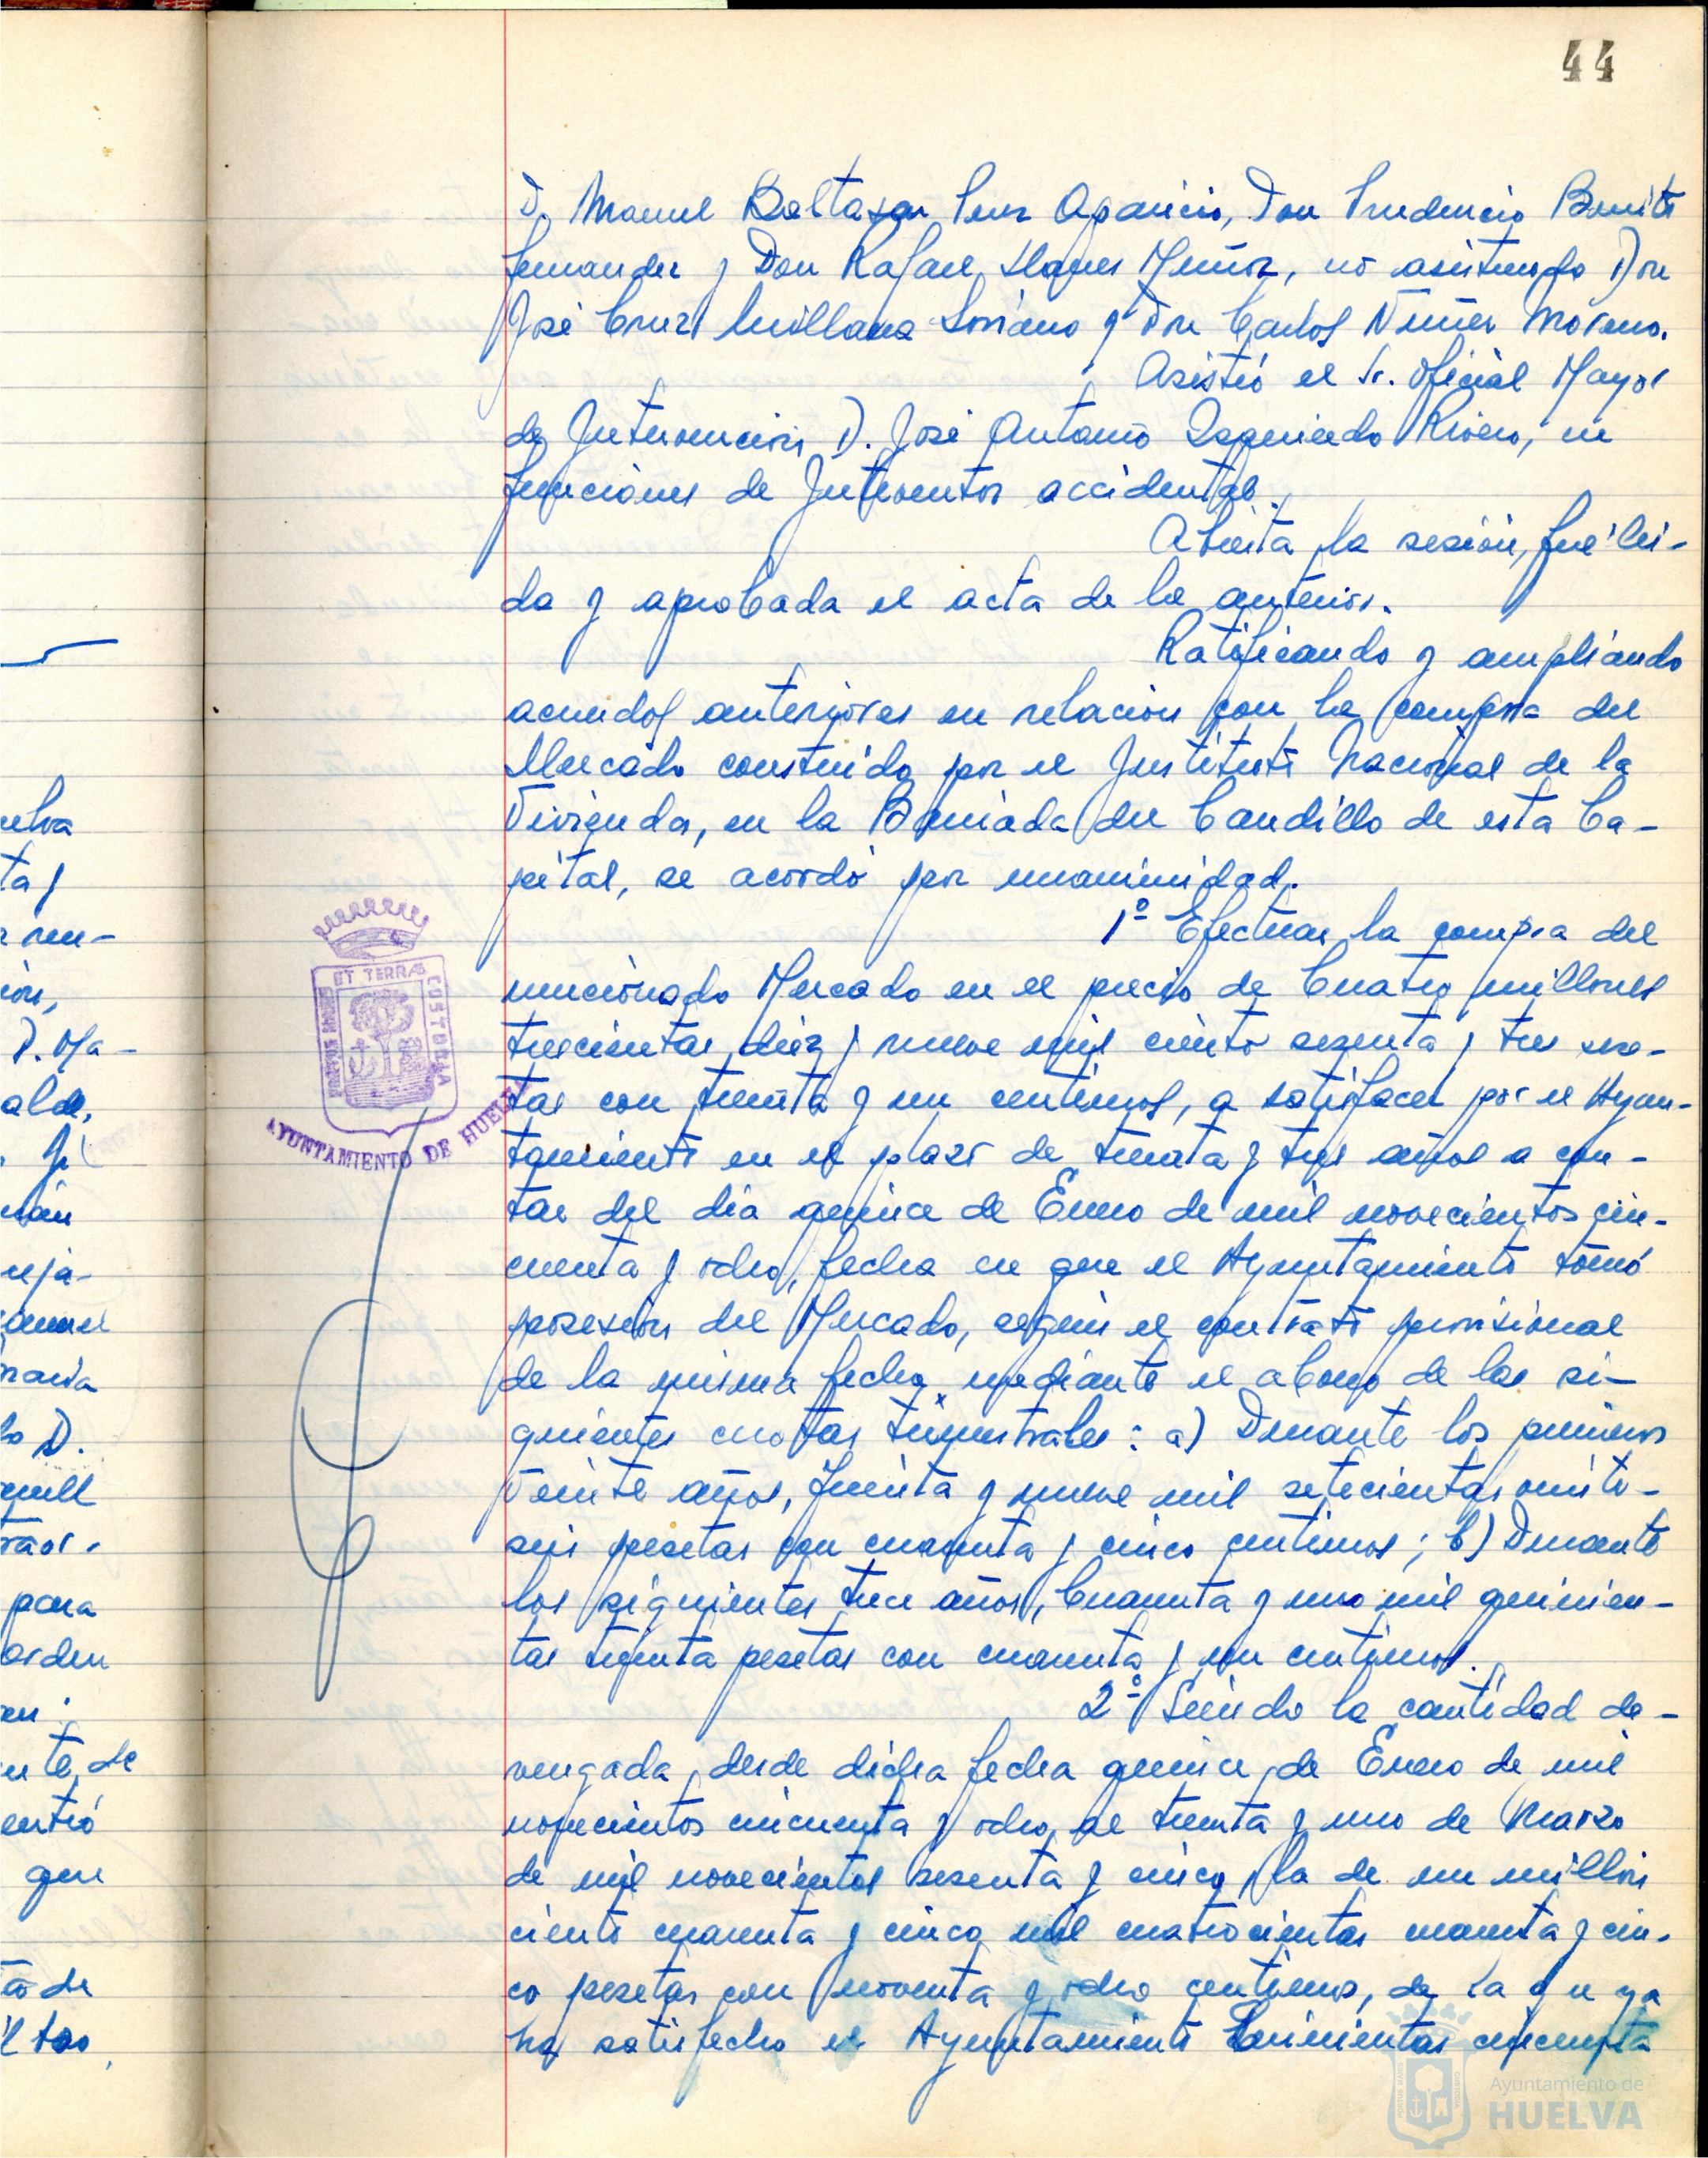 44
D. Manuel Baltasar Pérez Aparicio, Don Prudencio Benito
Fernandez y Don Rafael Llanes Muñoz, no asistiendo Don
José Cruz Quillana Soriano y Don Carlos Nuñez Moreno.
Asistió el Sr. Oficial Mayor
de Intervención D. José Antonio Izquierdo Rivero, en
funciones de Interventor accidental.
Abierta la sesión, fué lei-
da y aprobada el acta de la anterior.
Ratificando y ampliando
acuerdos anteriores en relación con la compra del
Mercado construido por el Instituto Nacional de la
Vivienda, en la Barriada del Caudillo de esta Ca-
pital, se acordó por unanimidad.
1º Efectuar la compra del
mencionado Mercado en el precio de Cuatro millones
trescientas diez y nueve mil ciento sesenta y tres pese-
tas con treinta y un centimos, a satisfacer por el Ayun-
tamiento en el plazo de treinta y tres años a con-
tar del dia quince de Enero de mil novecientos cin-
cuenta y ocho, fecha en que el Ayuntamiento tomó
posesión del Mercado, según el contrato provisional
de la misma fecha mediante el abono de las si-
guientes cuotas trimestrales: a) Durante los primeros
veinte años, treinta y nueve mil setecientas veinti-
seis pesetas con cuarenta y cinco centimos; b) Durante
los siguientes trece años, Cuarenta y uno mil quinien-
tas treinta pesetas con cuarenta y un centimos.
2º Siendo la cantidad de-
vengada, desde dicha fecha quince de Enero de mil
novecientos cincuenta y ocho, al treinta y uno de Marzo
de mil novecientos sesenta y cinco, la de un millón
ciento cuarenta y cinco mil cuatrocientas cuarenta y cin-
co pesetas con noventa y ocho centimos, de la que ya
ha satisfecho el Ayuntamiento Quinientas cincuenta
ET TERRAS
CUSTODIA
AYUNTAMIENTO DE HUELVA
uelva
D. Ma-
para
orden
que
Ayuntamiento de
HUELVA